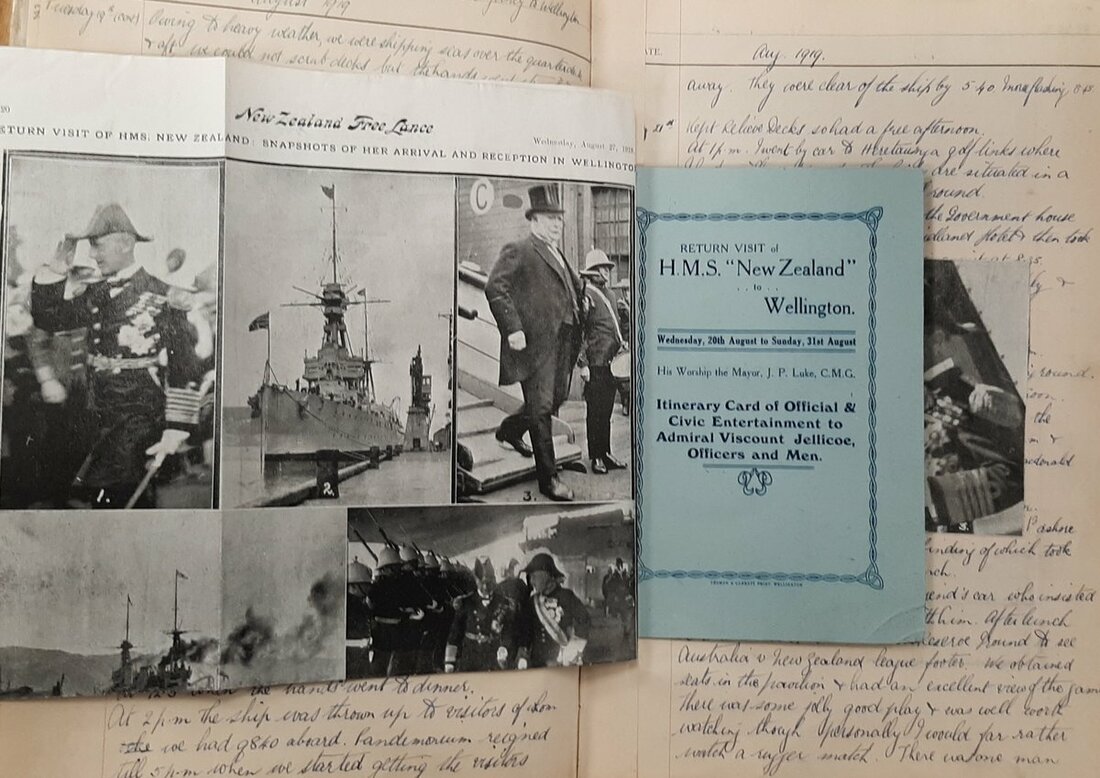 August 1919
to Wellington
Tuesday 19th (cont)
Owing to heavy weather, we were shipping seas over the quarterdeck
& aft we could not scrub decks but the hands went
New Zealand Free Lance
Wednesday, August 27, 1919
ETURN VISIT OF HMS. NEW ZEALAND: SNAPSHOTS OF HER ARRIVAL AND RECEPTION IN WELLINGTO
C
1.
2.
3.
when the hands went to dinner.
At 2 p.m the ship was thrown up to visitors of whom
we had 9840 aboard. Pandemonium reigned
till 5 p.m when we started getting the visitors
ATE.
Aug. 1919.
away. They were clear of the ship by 5.40
21st
Kept Relieve Decks so had a free afternoon.
At 1 p.m. I went by car to Heretaunga golf links where
are situated in a
round.
the Government house
Midland Hotel & then took
RETURN VISIT of
H.M.S. "New Zealand"
to
Wellington.
Wednesday, 20th August to Sunday, 31st August
His Worship the Mayor, J. P. Luke, C.M.G.
Itinerary Card of Official &
Civic Entertainment to
Admiral Viscount Jellicoe,
Officers and Men.
3.
y round.
the
ashore
landing of which took
end's car who insisted
him. After lunch
Reserve Ground to see
Australia v New Zealand league footer. We obtained
seats in the pavilion & had an excellent view of the game
there was some jolly good play & was well worth
watching though personally I would far rather
watch a rugger match. There was one man